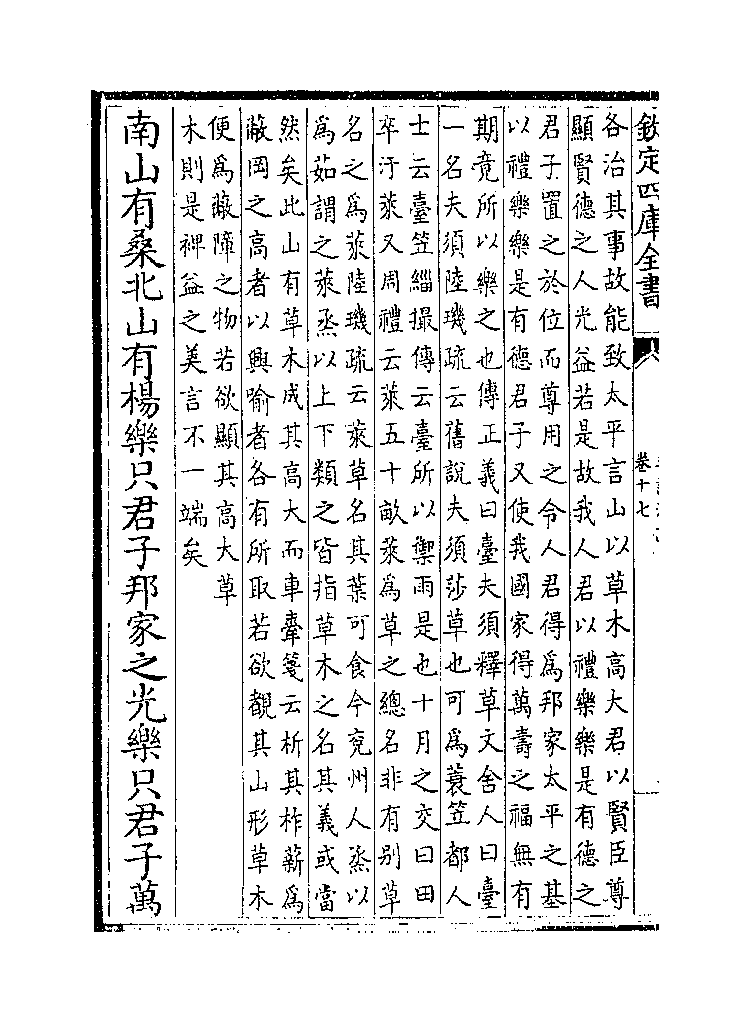 欽定四庫全書
卷十七
各治其事故能致太平言山以草木高大君以賢臣尊
顯賢德之人光益若是故我人君以禮樂樂是有德之
君子置之於位而尊用之令人君得爲邦家太平之基
以禮樂樂是有德君子又使我國家得萬壽之福無有
期竟所以樂之也傳正義曰臺夫須釋草文舍人曰臺
一名夫須陸璣疏云舊說夫須莎草也可爲蓑笠都人
士云臺笠緇撮傳云臺所以禦雨是也十月之交曰田
卒汙萊又周禮云萊五十畝萊爲草之總名非有别草
名之爲萊陸璣疏云萊草名其葉可食今兖州人烝以
爲茹謂之萊烝以上下類之皆指草木之名其義或當
然矣此山有草木成其高大而車舝箋云析其柞薪爲
蔽岡之高者以興喻者各有所取若欲覩其山形草木
便爲蔽障之物若欲顯其高大草
木則是裨益之美言不一端矣
南山有桑北山有楊樂只君子邦家之光樂只君子萬